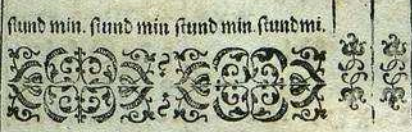 ſtund min. ſtund min ſtund min. ſtund mi.